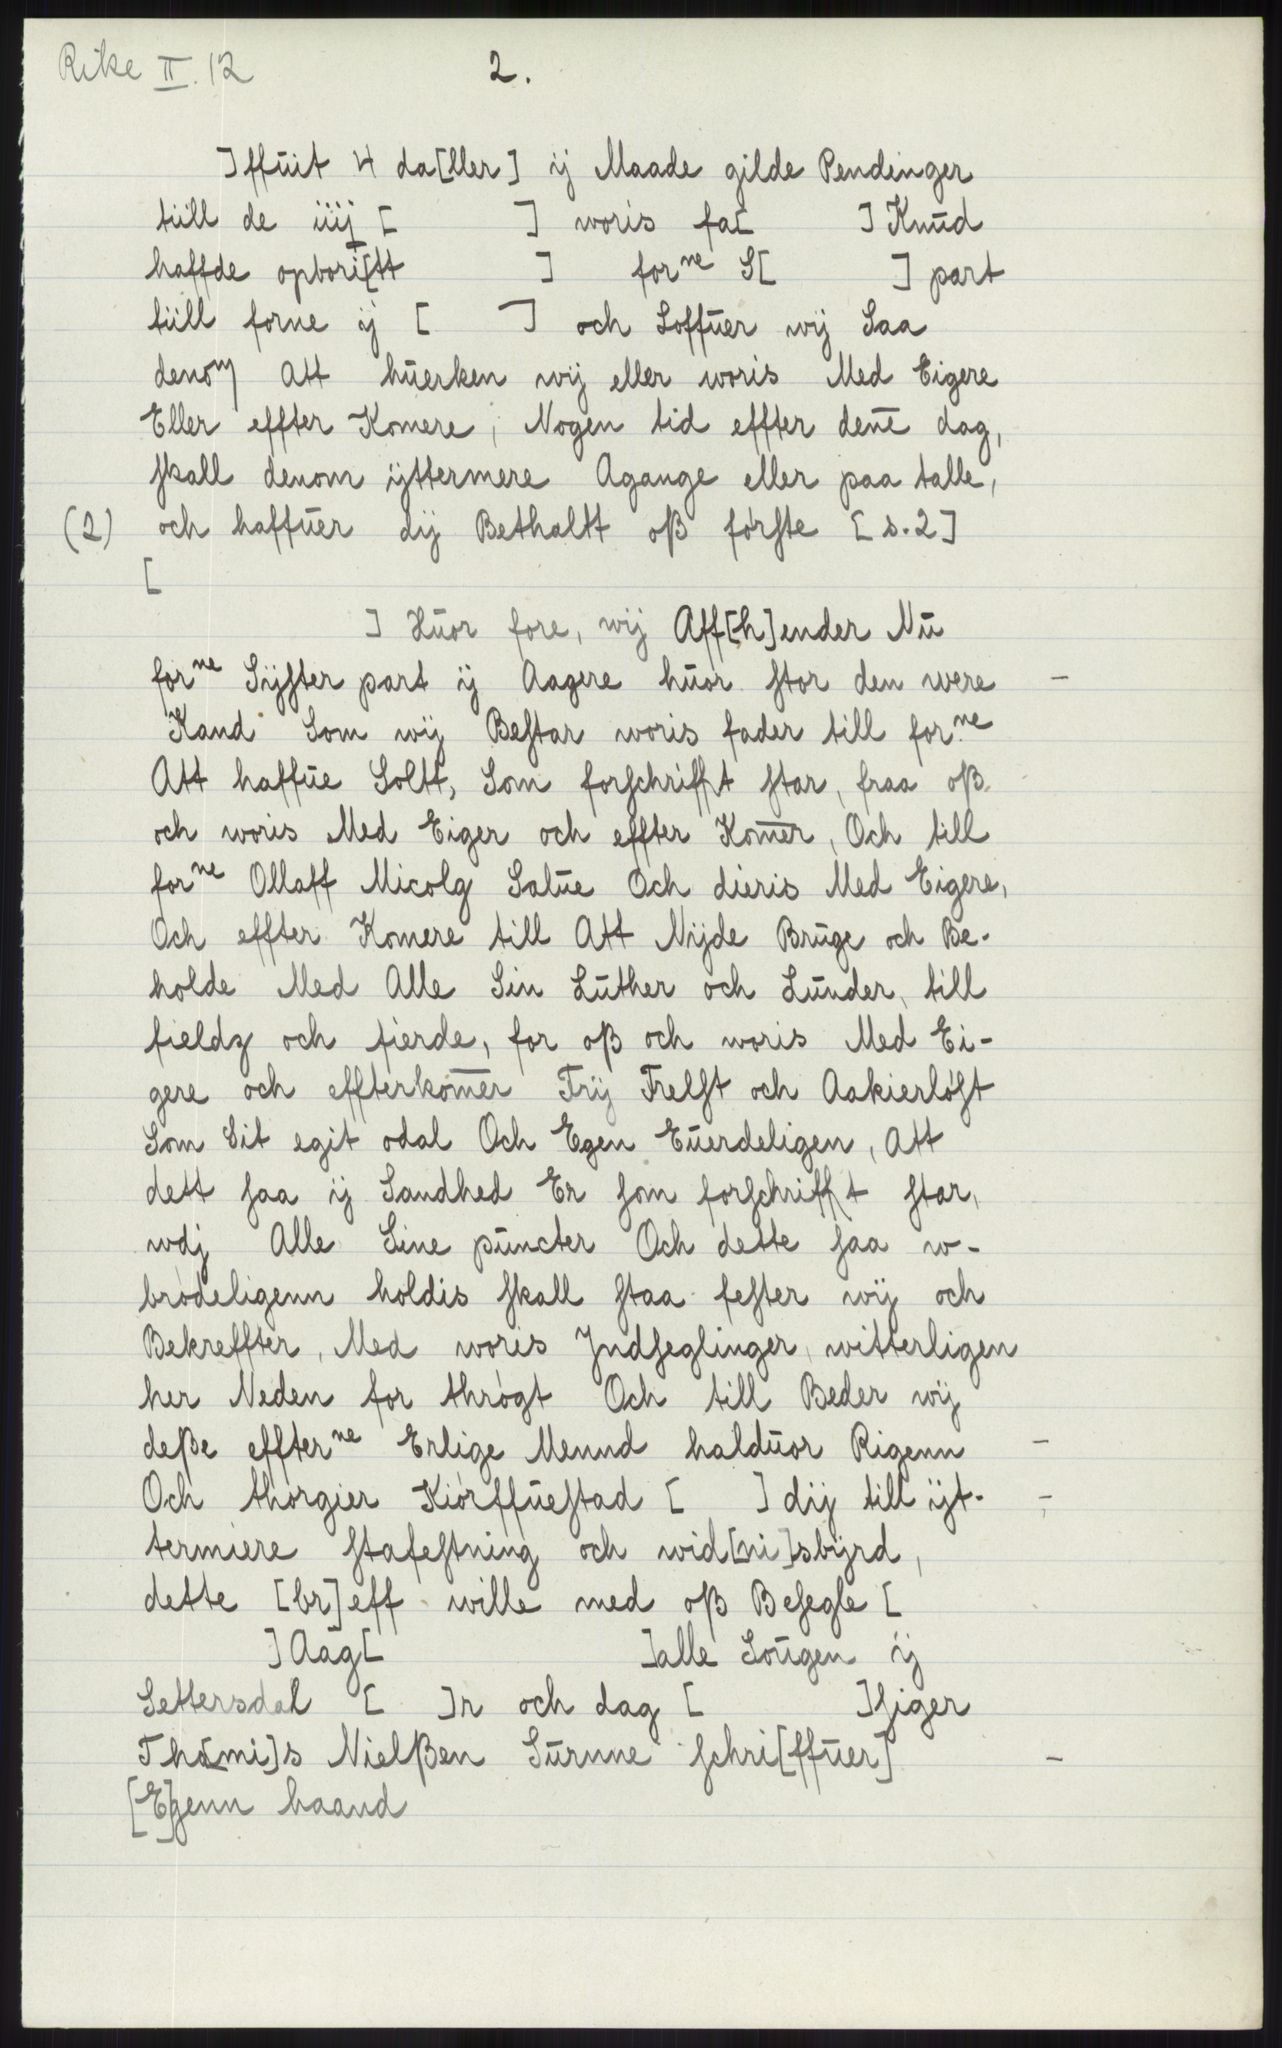 Rike II. 12
2.
]ffuit 4 da[ller] ij Maade gilde Pendinger
tiill de iiij [ ] woris fa[ ] Knud
haffde opbori[tt ] forne S[ ] part
tiill forne ij [ ] och Loffuer wij Saa
denom Att huerken wij eller woris Med Eigere
Eller effter Komere, Nogen tid effter denē dag,
skall denom ijttermere Agange eller paa talle,
(2) och haffuer dij Bethaltt oß første [s.2]
[
] Huor fore, wij Aff[h]ender Nu
forne Sijster part ij Aagere huor stor den were –
Kand Som wij Bestar woris fader till forne
Att haffue Soltt, Som forschrifft star, fraa oß
och woris Med Eiger och effter Kom̄er, Och till
forne Ollaff Micolg Salue Och dieris Med Eigere,
Och effter Komere till Att Nijde Bruge och Be-
holde Med Alle Sin Luther och Lunder, till
fieldz och fierde, for oß och woris Med Ei-
gere och effterkom̄er Frij Frelst och Aakierløst
Som Sit egit odal Och Egen Euerdeligen, Att
dett saa ij Sandhed Er som forschrifft star,
wdj Alle Sine puncter Och dette saa w-
brødeligenn holdis skall staa fester wij och
Bekreffter, Med woris Jndseglinger, witterligen
her Neden for thrøgt Och till Beder wij
deße effterne Erlige Mennd halduor Rigenn –
Och thorgier Kiørffuestad [ ] dij till ijt- –
termiere stafestning och wid[ni]sbijrd,
dette [br]eff wille med oß Besegle [
] Aag[ ]alle Sougen ij
Settersdal [ ]r och dag [ ]siger
Tho[mi]s Nielßen Surnne schri[ffuer] –
[E]genn haand